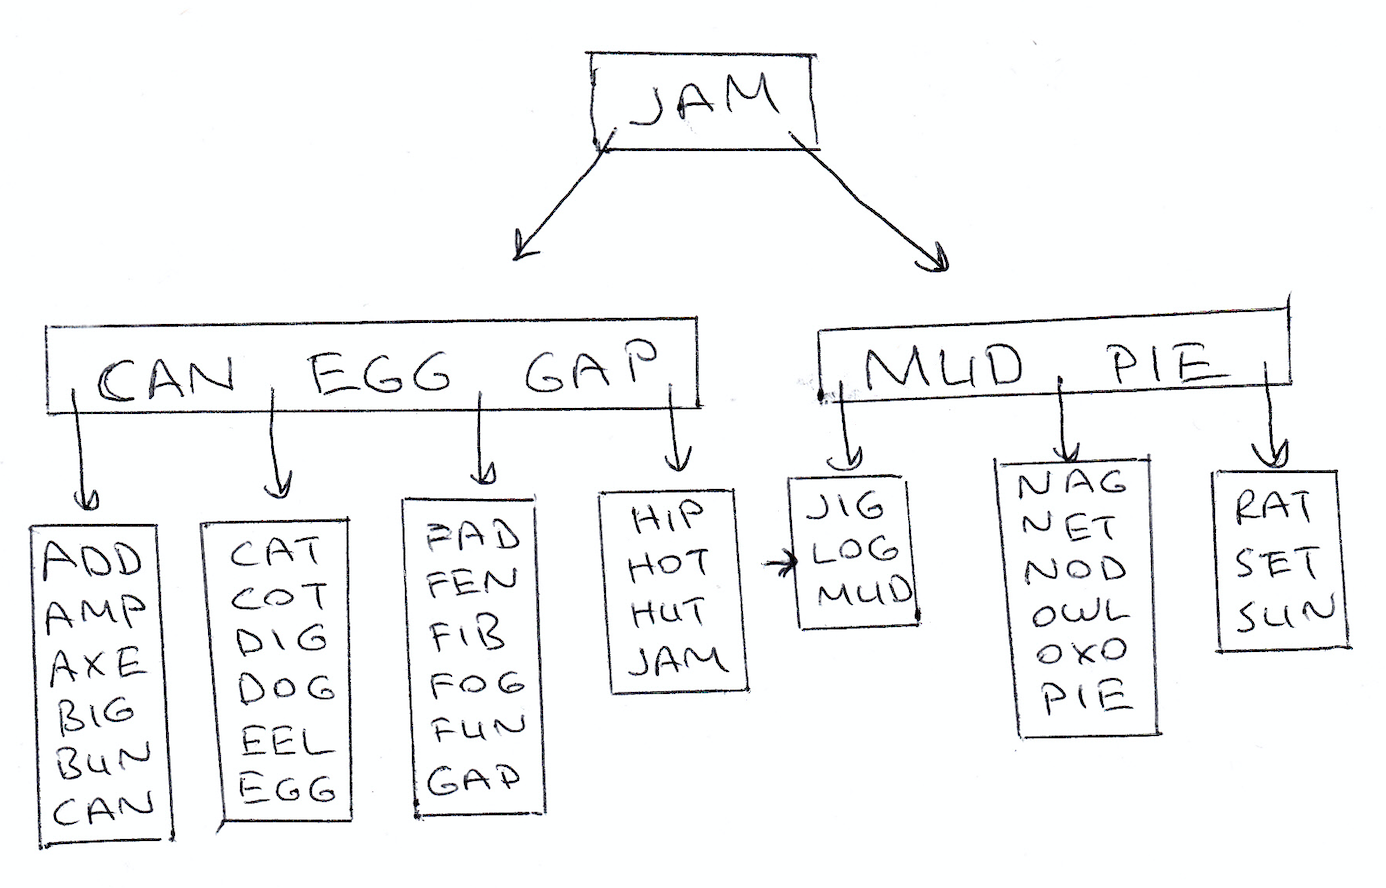 JAM
CAN EGG GAP
MUD PIE
ADD
AMP
AXE
BIG
BUN
CAN
CAT
COT
DIG
DOG
EEL
EGG
FAD
FEN
FIB
FOG
FUN
GAP
HIP
HOT
HUT
JAM
JIG
LOG
MUD
NAG
NET
NOD
OWL
OXO
PIE
RAT
SET
SUN